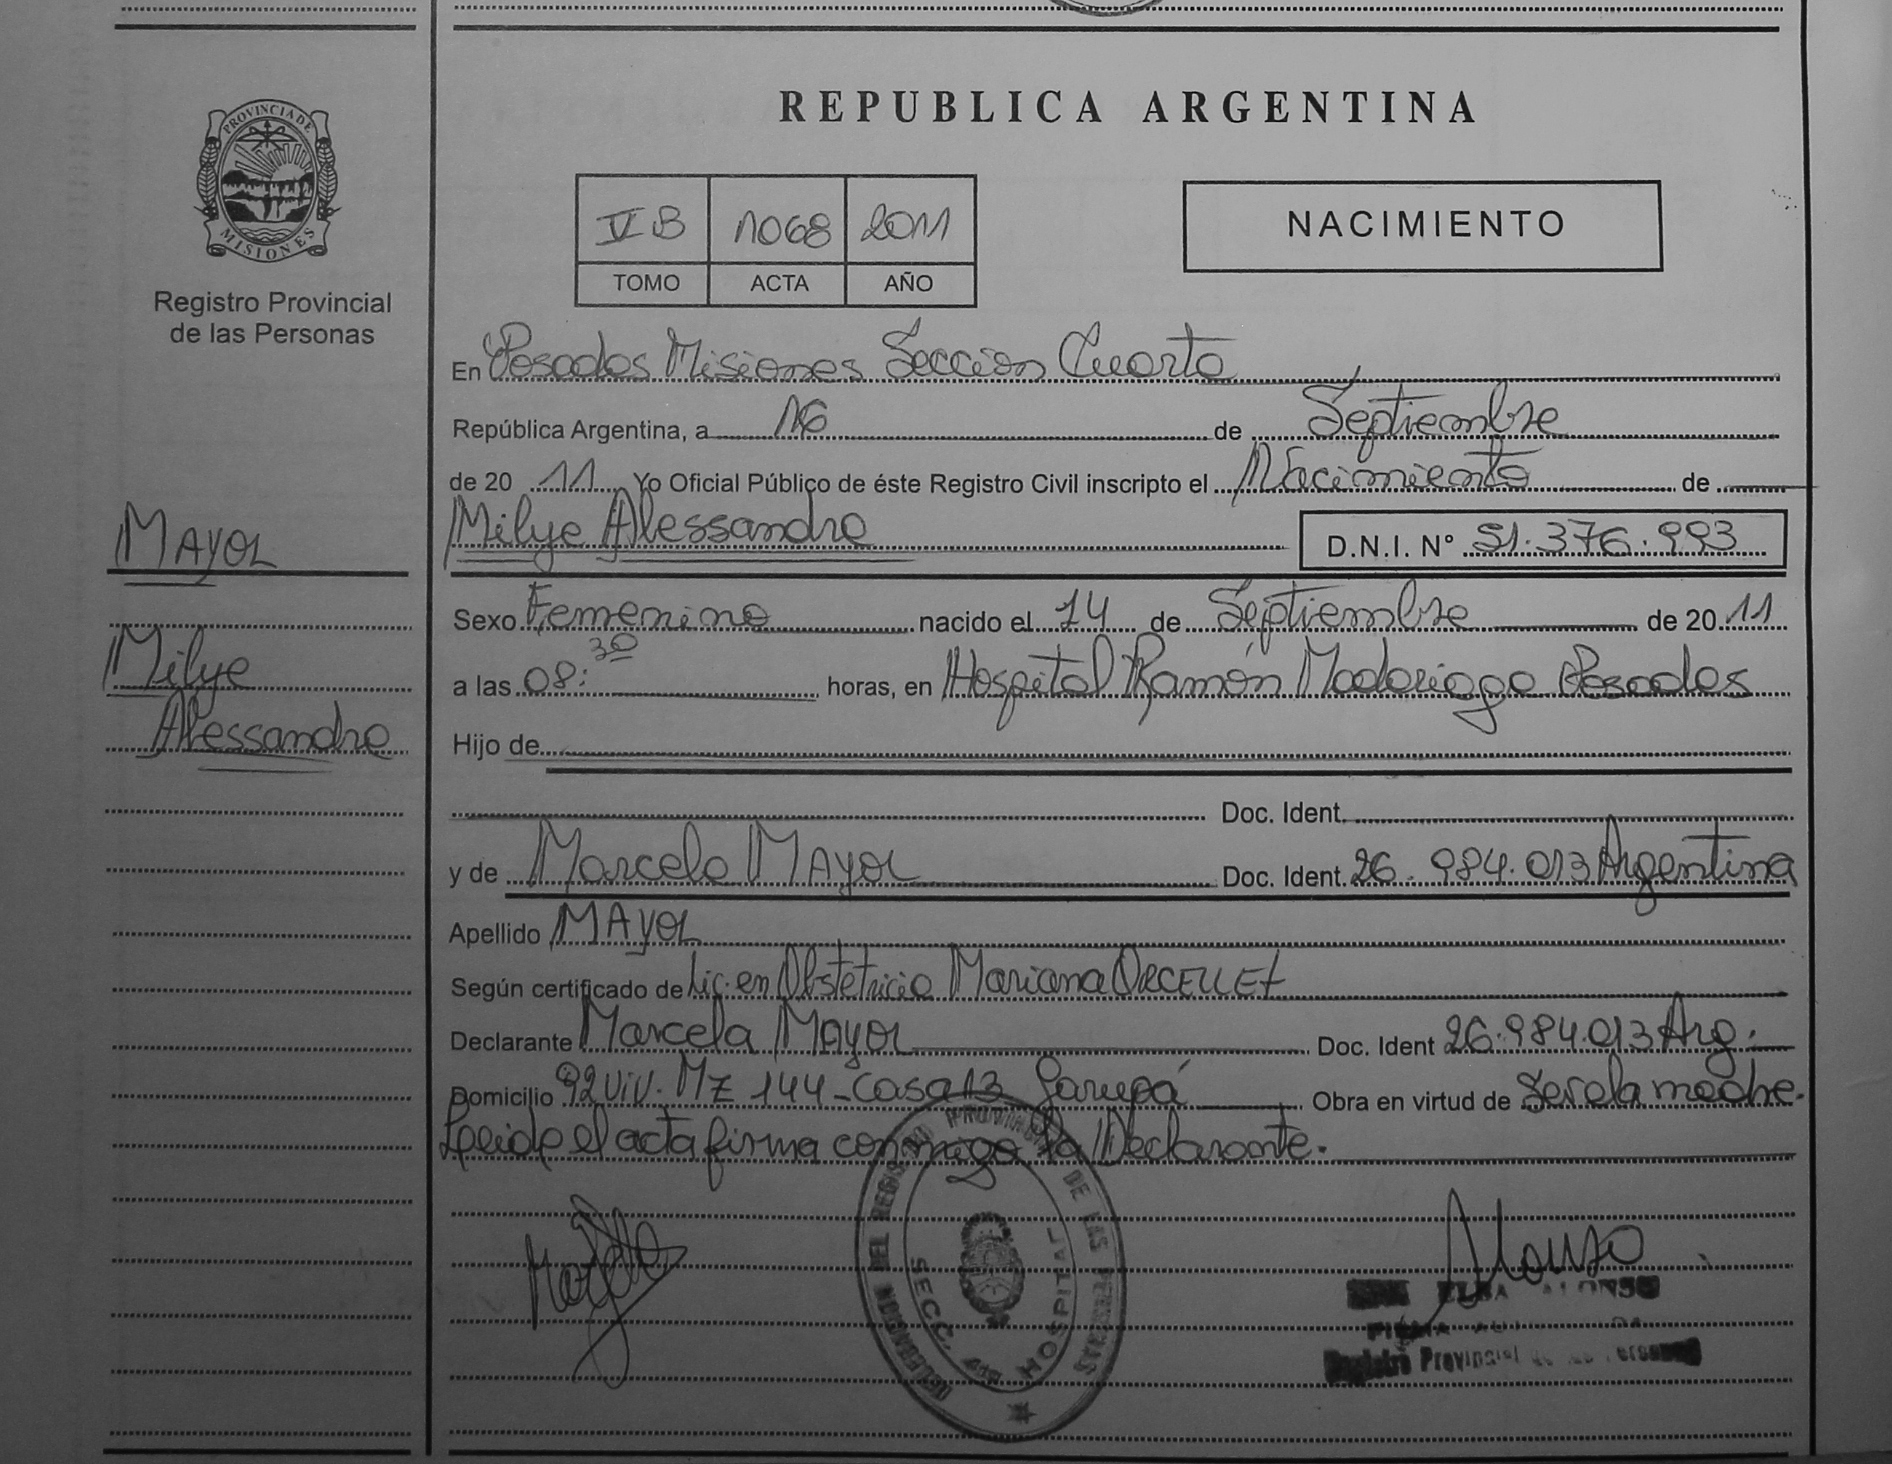 PROVINCIA DE
MISIONES
Registro Provincial
de las Personas
MAYOL
Milye
Alessandra
REPUBLICA ARGENTINA
IV B 1068 2011
TOMO ACTA AÑO
NACIMIENTO
En Posadas Misiones Sección Cuarta
República Argentina, a 16 de Septiembre
de 20 11 Yo Oficial Público de éste Registro Civil inscripto el Nacimiento de
Milye Alessandra D.N.I. Nº 51.376.993
Sexo Femenino nacido el 14 de Septiembre de 20 11
a las 08:30 horas, en Hospital Ramón Madariaga Posadas
Hijo de
Doc. Ident.
y de Marcela MAYOL Doc. Ident. 26.984.013 Argentina
Apellido MAYOL
Según certificado de Lic. en Obstetricia Mariana ORCELLET
Declarante Marcela MAYOL Doc. Ident 26.984.013 Arg.
Domicilio 92 Viv. Mz 144 - Casa 13 Garupá Obra en virtud de Ser la madre.
Leida el acta firma conmigo la Declarante.
DELEGACION DEL REGISTRO PROVINCIAL DE LAS PERSONAS
SECC. 4ta HOSPITAL
Alonso
ELBA ALONSO
FIRMA
Registro Provincial de las Personas